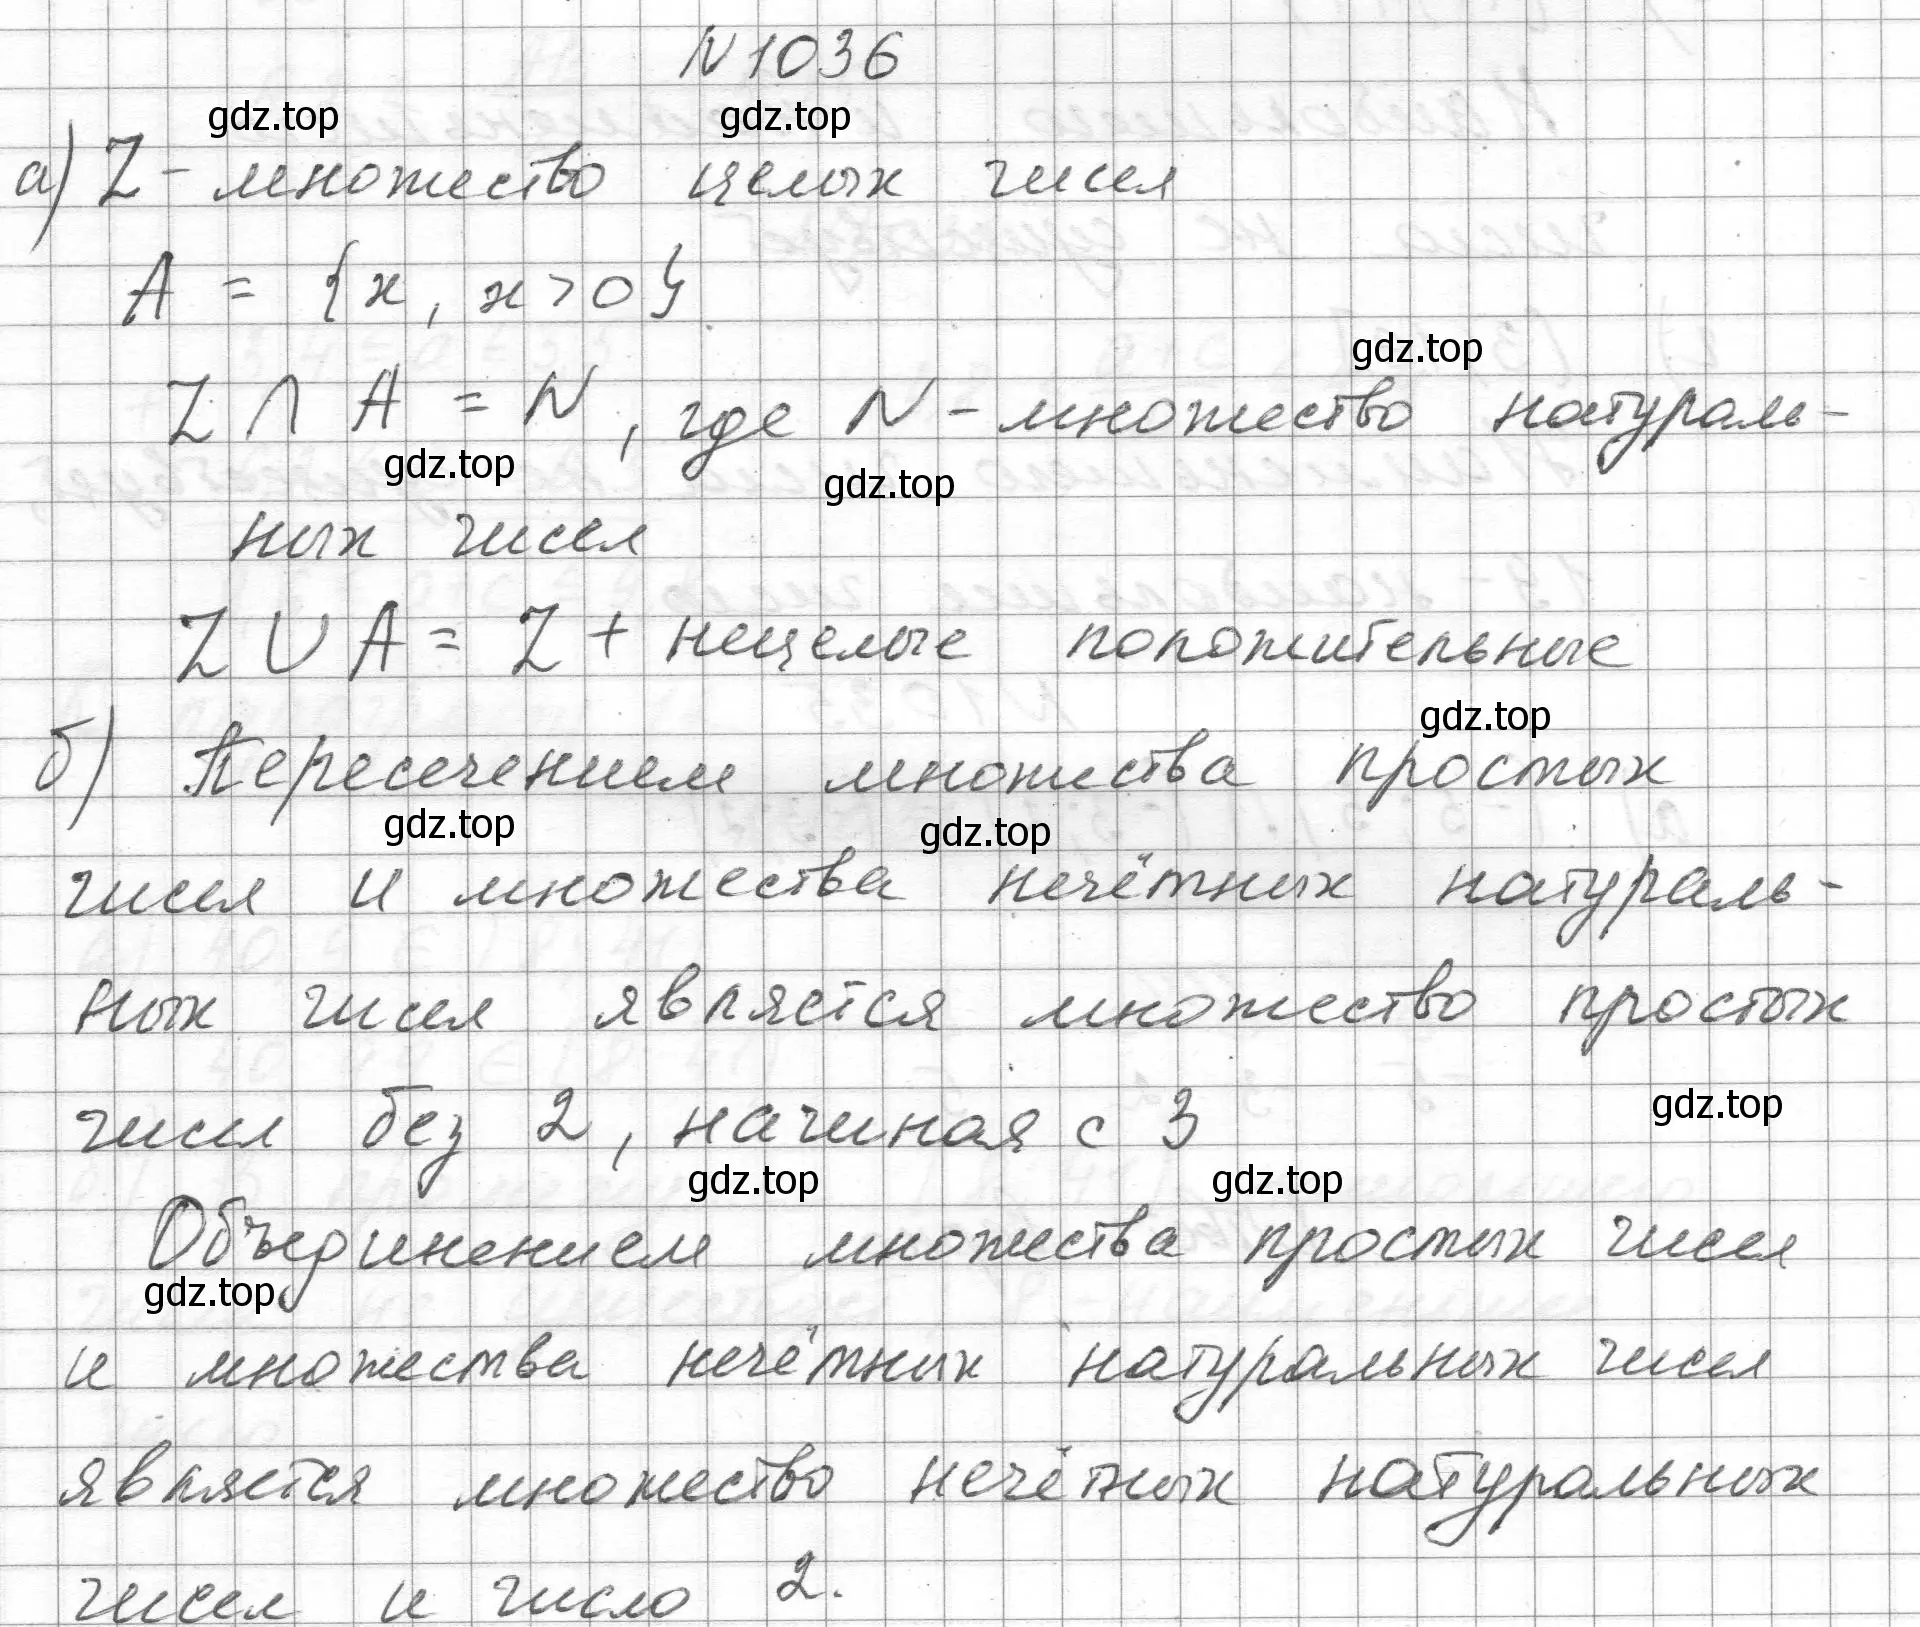 N 1036
gdz.top gdz.top
а) Z - множество целых чисел
A = {x, x > 0}
gdz.top
Z ∩ A = N, где N - множество натураль-
gdz.top gdz.top
ных чисел
Z ∪ A = Z + нецелые положительные
gdz.top
б) Пересечением множества простых
gdz.top gdz.top
чисел и множества нечётных натураль-
ных чисел является множество простых
gdz.top
чисел без 2, начиная с 3
gdz.top gdz.top
Объединением множества простых чисел
gdz.top
и множества нечётных натуральных чисел
является множество нечётных натуральных
чисел и число 2.